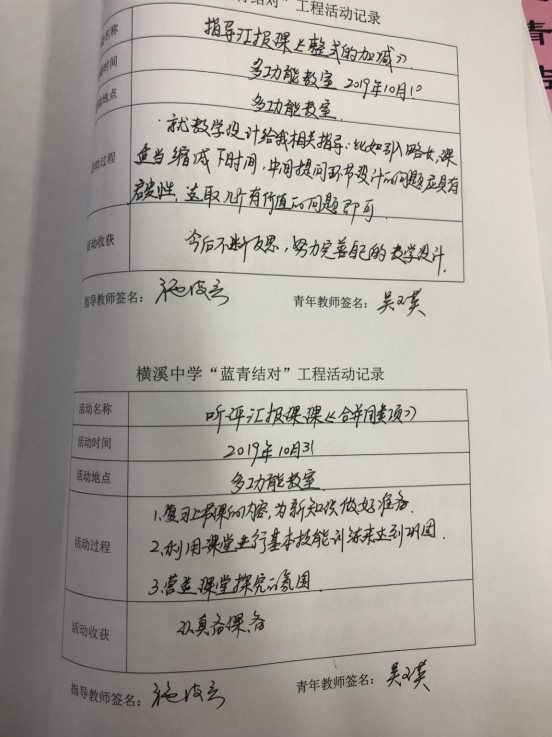 青结对”工程活动记录
名称 指导汇报课《整式的加减》
时间 多功能教室 2019年10月10
动地点 多功能教室.
动过程 就教学设计给我相关指导:比如引入略长,课
适当缩减下时间,中间提问环节设计的问题应具有
启发性,选取几个有价值的问题即可.
活动收获 今后不断反思,努力完善自己的教学设计.
指导教师签名: 青年教师签名:吴文英
横溪中学“蓝青结对”工程活动记录
活动名称 听评汇报课课《合并同类项》
活动时间 2019年10月31
活动地点 多功能教室
活动过程 1.复习上节课的内容,为新知识做好准备.
2.利用课堂进行基本技能训练来达到巩固.
3.营造课堂探究的氛围.
活动收获 认真备课备
指导教师签名: 青年教师签名:吴文英
青